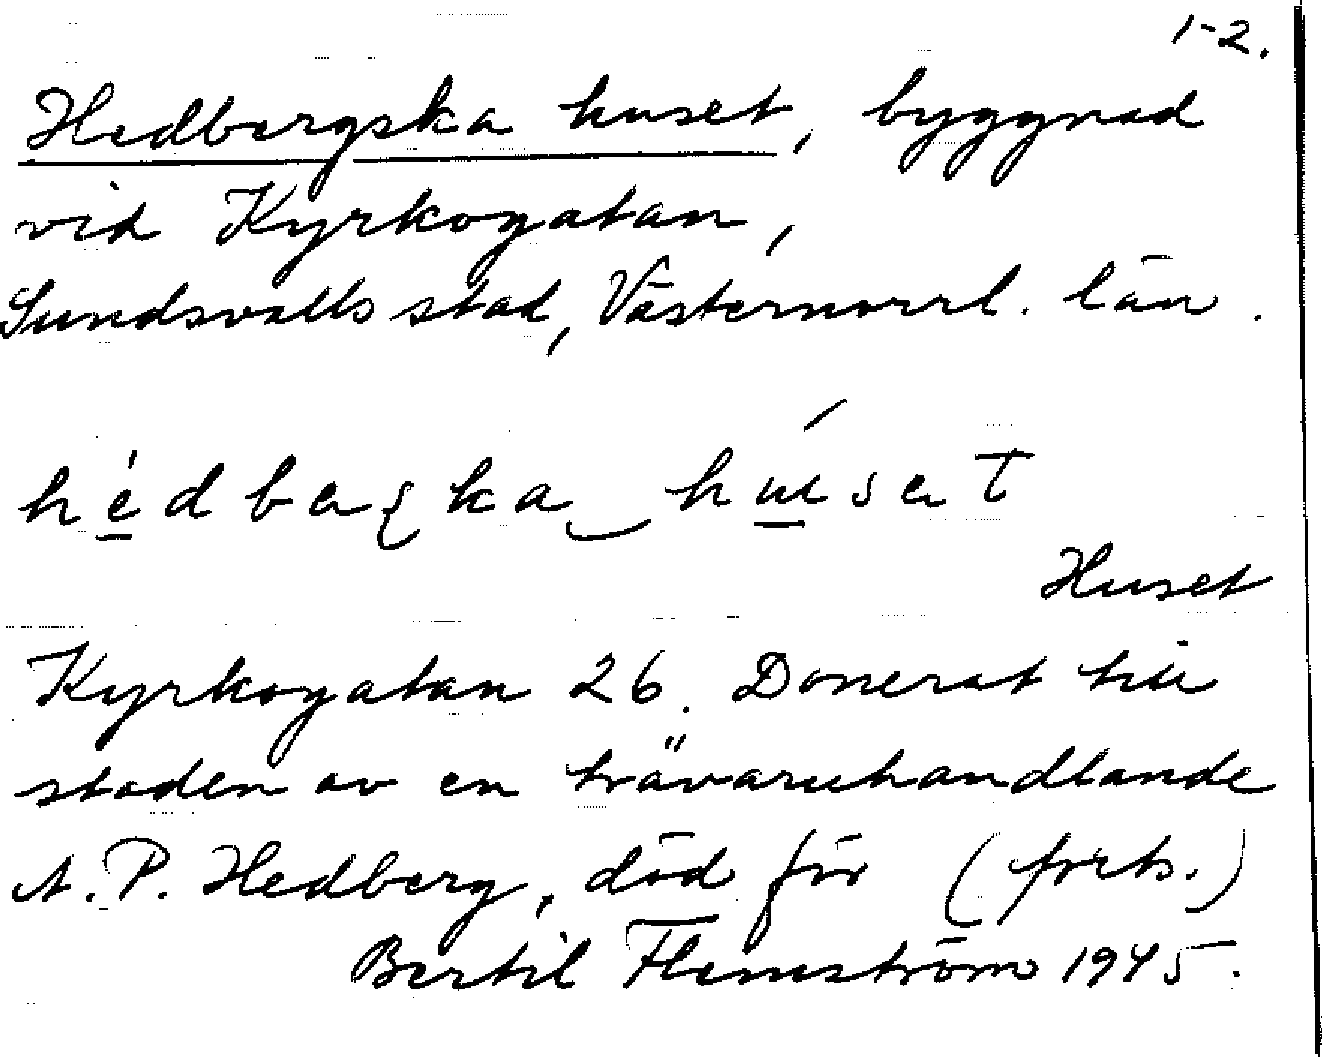 1-2.
Hedbergska huset, byggnad
vid Kyrkogatan,
Sundsvalls stad, Västernorrl. län.
Huset
Kyrkogatan 26. Donerat till
staden av en trävaruhandlande
A. P. Hedberg, död för (forts.)
Bertil Flemström 1945.